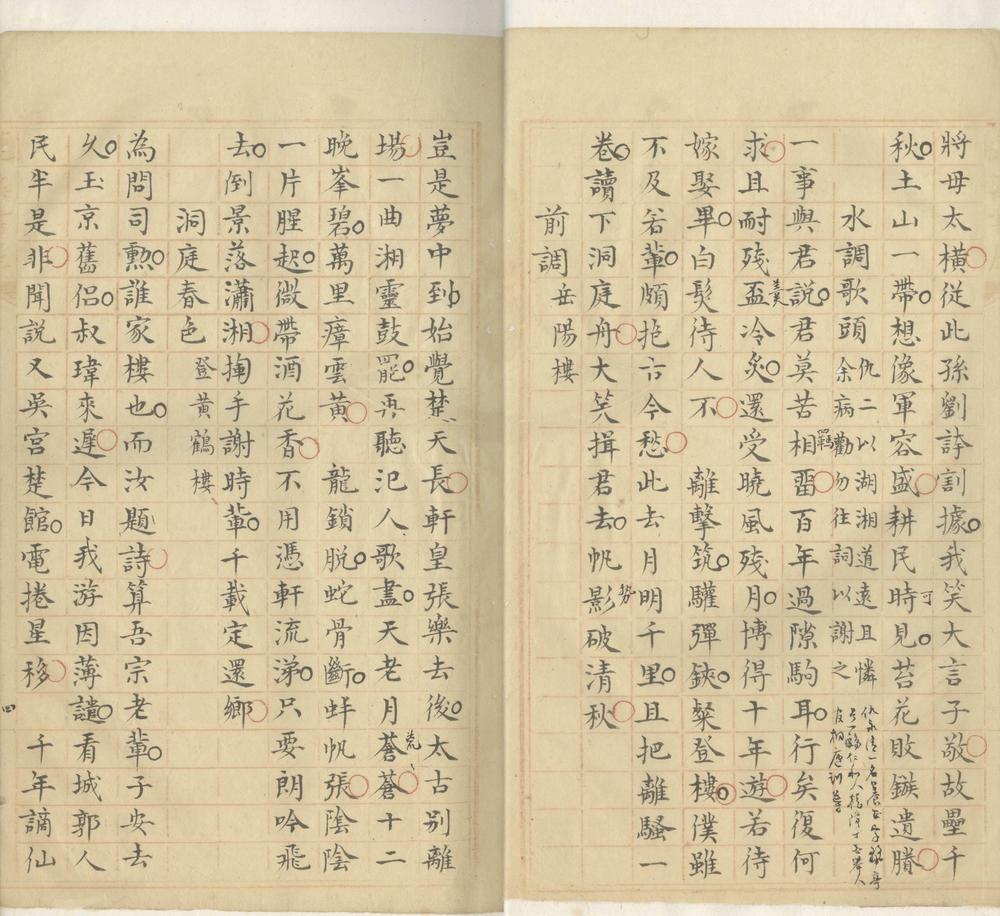 將毋太橫從此孫劉誇割據我笑大言子敬故壘千
秋土山一帶想像軍容盛耕民時見苔花敗鏃遺腾
可
水調歌頭
仇二以湖湘道遠且憐
余病羈勸勿往詞以謝之
一事與君說君莫苦相畱百年過隙駒耳行矣復何
求且耐殘盃冷炙還受曉風殘月博得十年遊若待
羹
嫁娶畢白髮待人不 離擊筑驩彈鋏粲登樓僕雖
不及若輩頗抱古今愁此去月明千里且把離騷一
卷讀下洞庭舟大笑揖君去帆影破清秋
勢
前調 岳陽樓
豈是夢中到始覺楚天長軒皇張樂去後太古別離
場一曲湘靈鼓罷再聽汜人歌盡天老月蒼蒼十二
荒
晚峯碧萬里瘴雲黃 龍鎖脫蛇骨斷蚌帆張陰陰
一片腥起微帶酒花香不用憑軒流涕只要朗吟飛
去倒景落瀟湘掬手謝時輩千載定還鄉
洞庭春色 登黃鶴樓
為問司勲誰家樓也而汝題詩算吾宗老輩子安去
久玉京舊侶叔瑋來遲今日我游因薄譴看城郭人
民半是非聞說又吳宮楚館電捲星移 千年謫仙
四